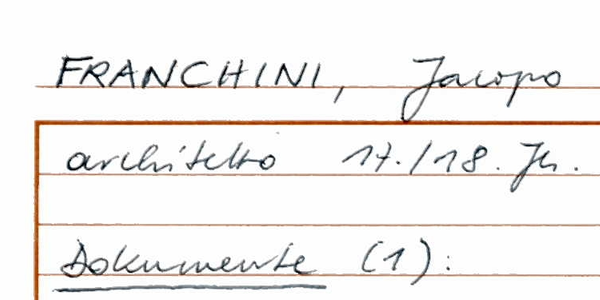 FRANCHINI, Jacopo
architetto 17./18. Jh.
Dokumente (1):